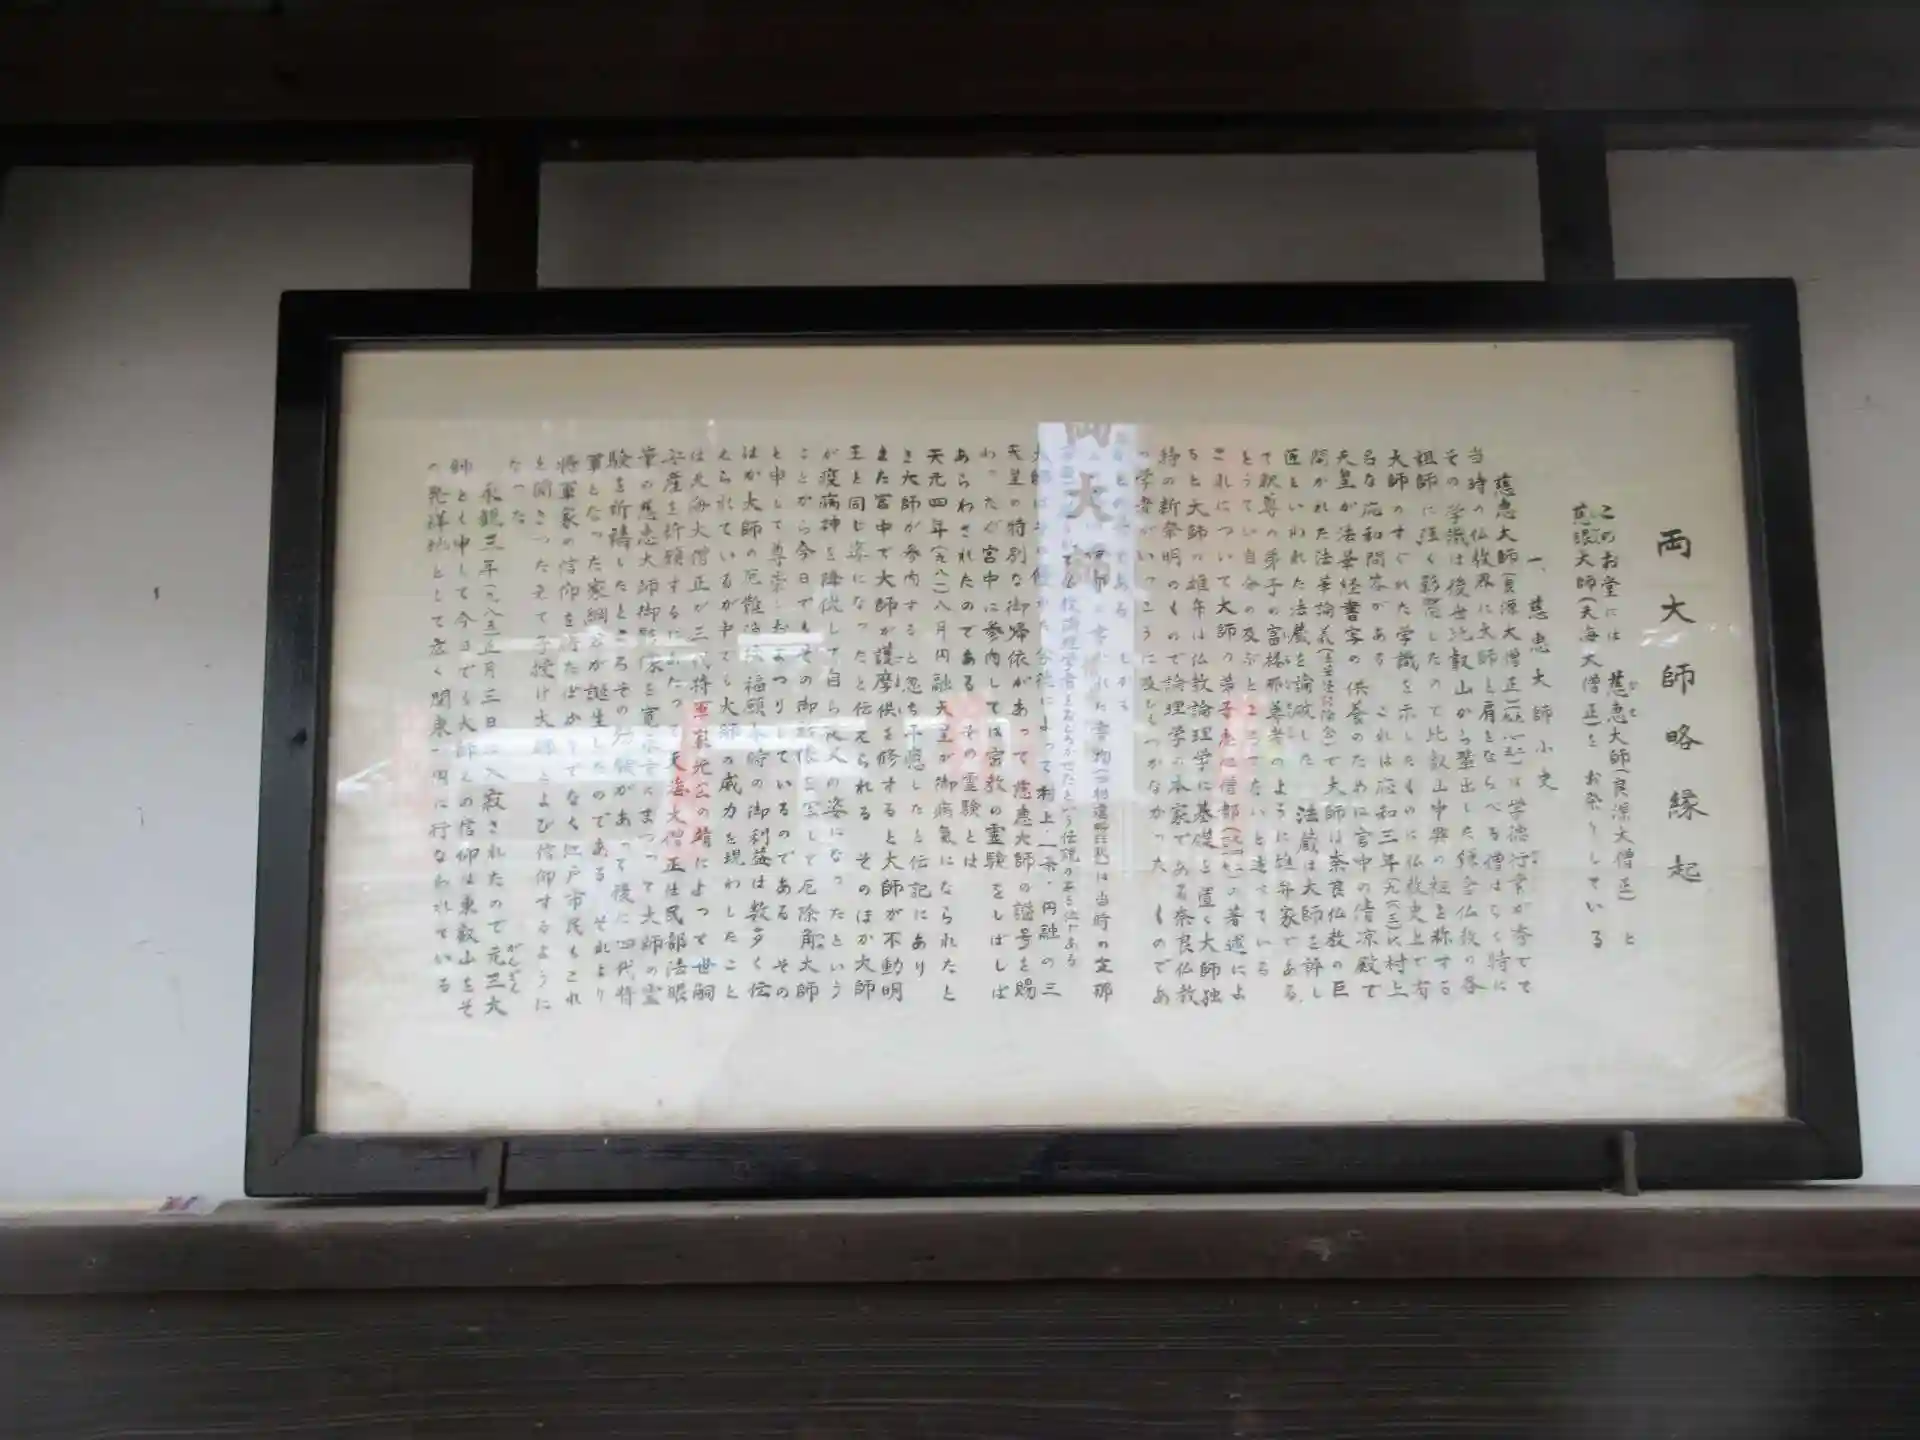 両大師略縁起
このお堂には 慈恵大師(良源大僧正)と
慈眼大師(天海大僧正)を お祭りしている
一、慈恵大師小史
慈恵大師(良源大僧正)は学徳行業が秀でて
当時の仏教界に大師と肩をならべる僧はなく特に
その学識は後世比叡山から輩出した鎌倉仏教の各
祖師に強く影響したので比叡山中興の祖と称する
大師のすぐれた学識を示したものに仏教史上で有
名な応和問答がある これは応和三年(九六三)に村上
天皇が法華経書写の供養のために宮中の清凉殿で
開かれた法華論義で大師は奈良仏教の巨
匠といわれた法蔵を論破した 法蔵は大師を評し
て釈尊の弟子の富楼那尊者のように雄弁家である
とうてい自分の及ぶところでないと述べている
これについて大師の弟子恵心僧都の著述によ
ると大師の雄弁は仏教論理学に基礎を置く大師独
特の新発明のもので論理学の本家である奈良仏教
の学者がいっこうに及びもつかなかったものであ
によって村上・一条・円融の三
天皇の特別な御帰依があって慈恵大師の諡号を賜
わったが宮中に参内しては密教の霊験をしばしば
あらわされたのである その霊験とは
天元四年(九八一)八月円融天皇が御病気になられたと
き大師が参内すると忽ち平癒したと伝記にあり
また宮中で大師が護摩供を修すると大師が不動明
王と同じ姿になったと伝えられる そのほか大師
が疫病神を降伏して自ら夜叉の姿になったという
ことから今日でもその御影像を写して厄除角大師
と申して尊崇しおまつりしているのである その
ほか大師の厄難消除福願不時の御利益は数多く伝
えられているが中でも大師の威力を現わしたこと
は天海大僧正が三代将軍家光公の請によって世嗣
安産を祈願するにあたって天海大僧正は民部法眼
筆の慈恵大師御影像を寛永寺にまつって大師の霊
験を祈祷したところその効験があって後に四代将
軍となった家綱公が誕生したのである それより
将軍家の信仰を得たばかりでなく江戸市民もこれ
を聞きつたえて子授け大師とよび信仰するように
なった
永観三年(九八五)正月三日に入寂されたので元三大
師とも申して今日でも大師との信仰は東叡山をそ
の発祥地として広く関東一円に行なわれている